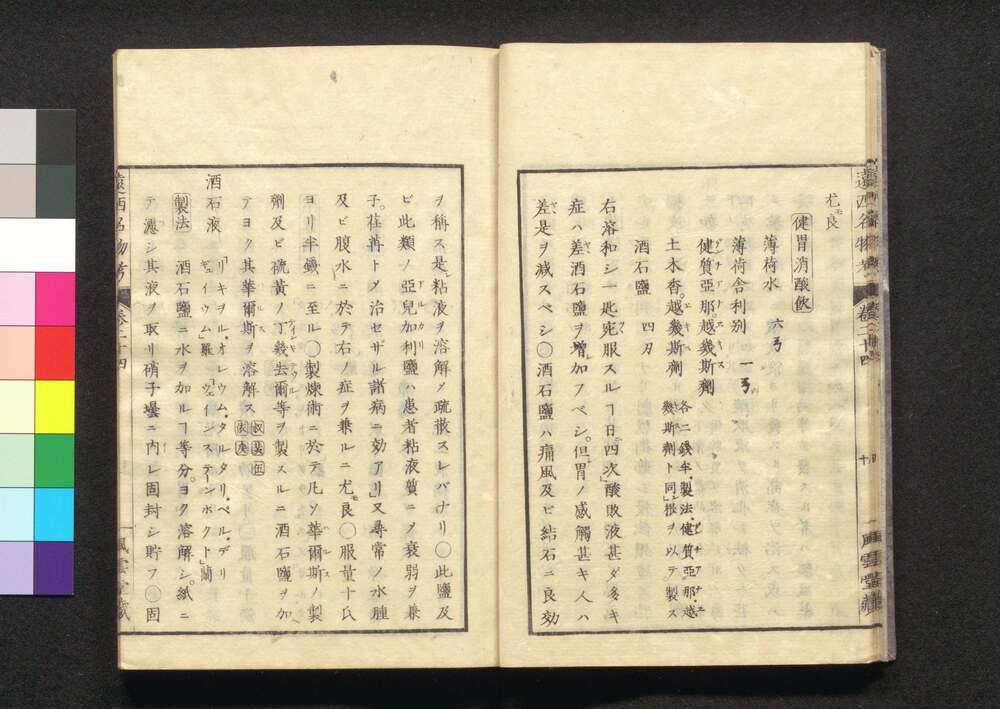 尤モ良
健胃消酸飲
薄荷水 六弓
薄荷舎利別 一弓
健質亜那越幾斯劑
土木香越幾斯劑 各二錢半製法健質亜那越
幾斯劑ト同シ根ヲ以テ製ス
酒石鹽 四刃
右溶和シ一匙宛服スルヿ日四次酸敗液甚ダ多キ
症ハ差酒石鹽ヲ増加フベシ但胃ノ感觸甚キ人ハ
差是ヲ減スベシ〇酒石鹽ハ痛風及ビ結石ニ良効
遠西名物考 巻二十四
十
風雲堂藏
ヲ稱ス是粘液ヲ溶解シ疏散スレバナリ〇此鹽及
ビ此類ノ亜兒加利鹽ハ患者粘液質ニシテ衰弱ヲ兼
子荏苒トシテ治セザル諸病ニ効アリ又尋常ノ水腫
及ビ腹水ニ於テ右ノ症ヲ兼ルニ尤モ良〇服量十氏
ヨリ半錢ニ至ル〇製煉術ニ於テ凡ソ華爾斯ノ製
劑及ビ硫黄ノ丁幾去爾等ヲ製スルニ酒石鹽ヲ加
テヨク其華爾斯ヲ溶解ス
酒石液 リキヲル・オレウム・タルタリ・ペル・デリ
ウェイウム羅 ウェインステーンボクト蘭
製法 酒石鹽ニ水ヲ加ルヿ等分ヨク溶解シ紙ニ
テ濾シ其液ヲ取リ硝子壜ニ内レ固封シ貯フ〇固
遠西名物考 巻二十四
風雲堂藏